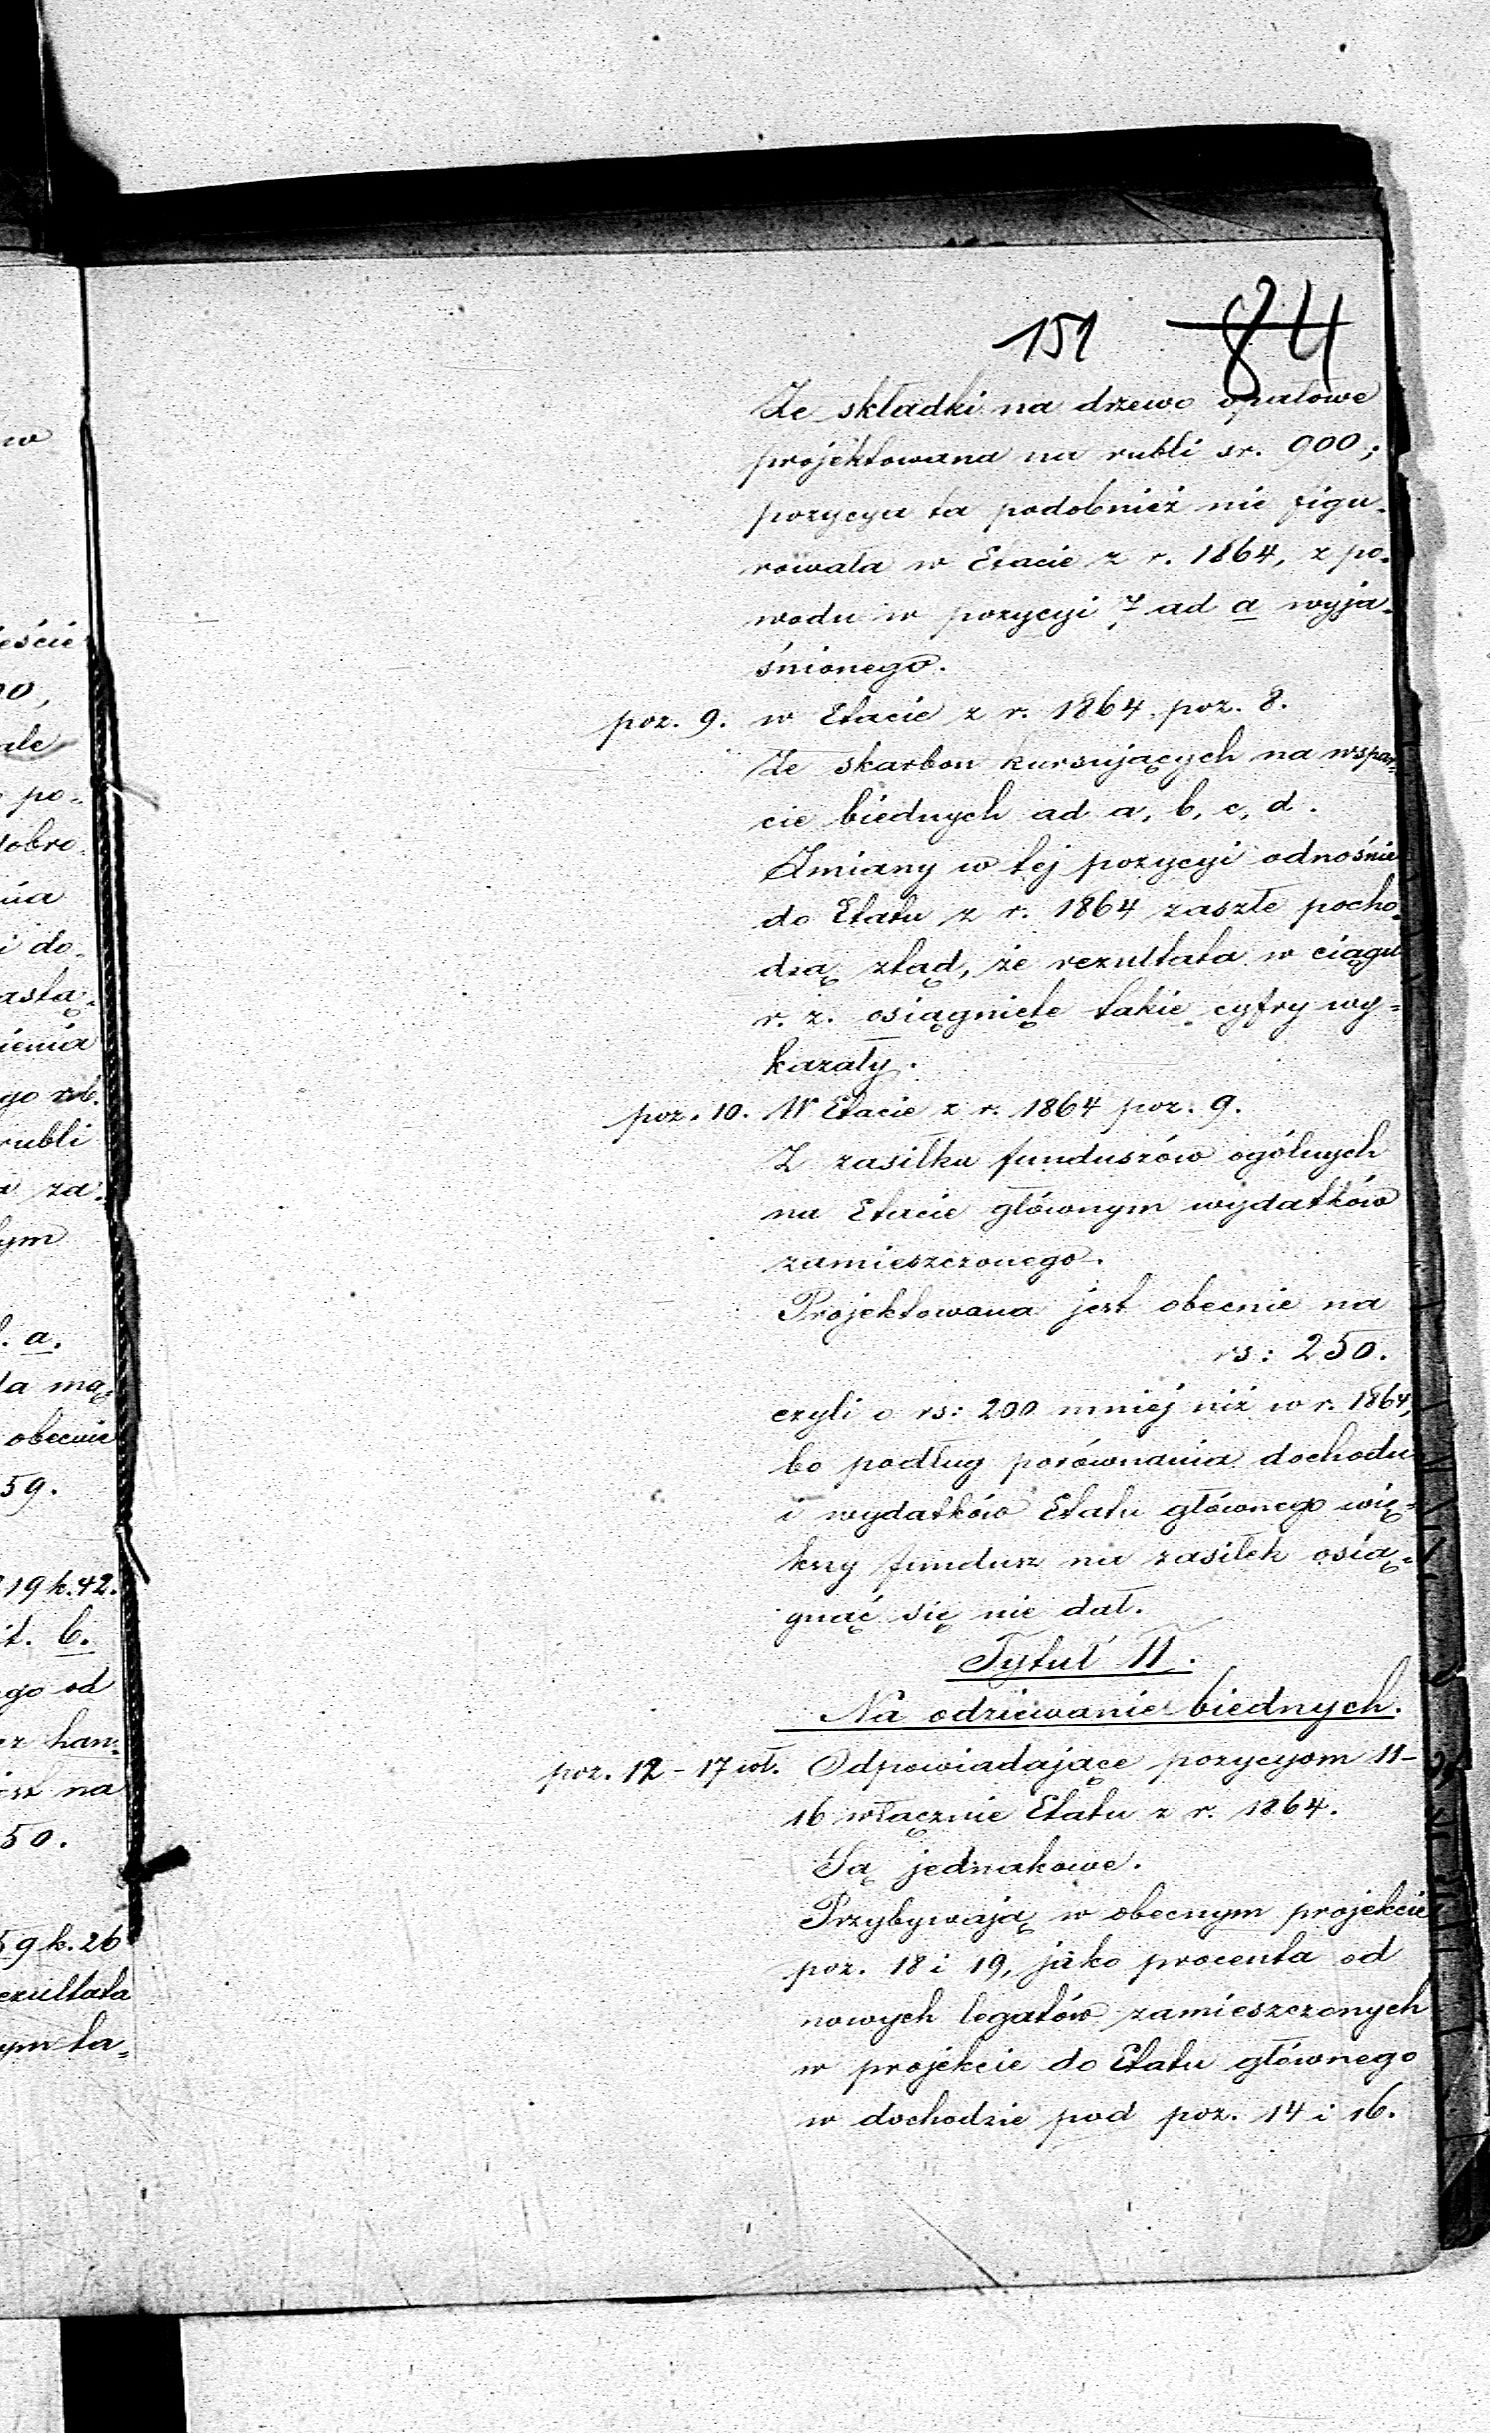 151 84
Ze składki na drzewo opałowe
projektowana na rubli sr. 900;
pozycya ta podobnież nie figu-
rowała w Etacie z r. 1864, z po-
wodu w pozycyi 7 ad a wyja-
śnionego.
poz. 9. w Etacie z r. 1864. poz. 8.
Ze skarbon kursujących na wspar-
cie biednych ad a, b, c, d.
Zmiany w tej pozycyi odnośnie
do Etatu z r. 1864 zaszłe pocho-
dzą ztąd, że rezultata w ciągu
r. z. osiągnięte takie cyfry wy-
kazały.
poz. 10. W Etacie z r. 1864 poz. 9.
Z zasiłku funduszów ogólnych
na Etacie głównym wydatków
zamieszczonego.
Projektowana jest obecnie na
rs: 250.
czyli o rs: 200 mniej niż w r. 1864,
bo podług porównania dochodu
i wydatków Etatu głównego wię-
kszy fundusz na zasiłek osią-
gnąć się nie dał.
Tytuł II.
Na odziewanie biednych.
poz. 12 - 17 wł. Odpowiadające pozycyom 11-
16 włącznie Etatu z r. 1864.
Są jednakowe.
Przybywają w obecnym projekcie
poz. 18 i 19, jako procenta od
nowych legatów zamieszczonych
w projekcie do Etatu głównego
w dochodzie pod poz. 14 i 16.